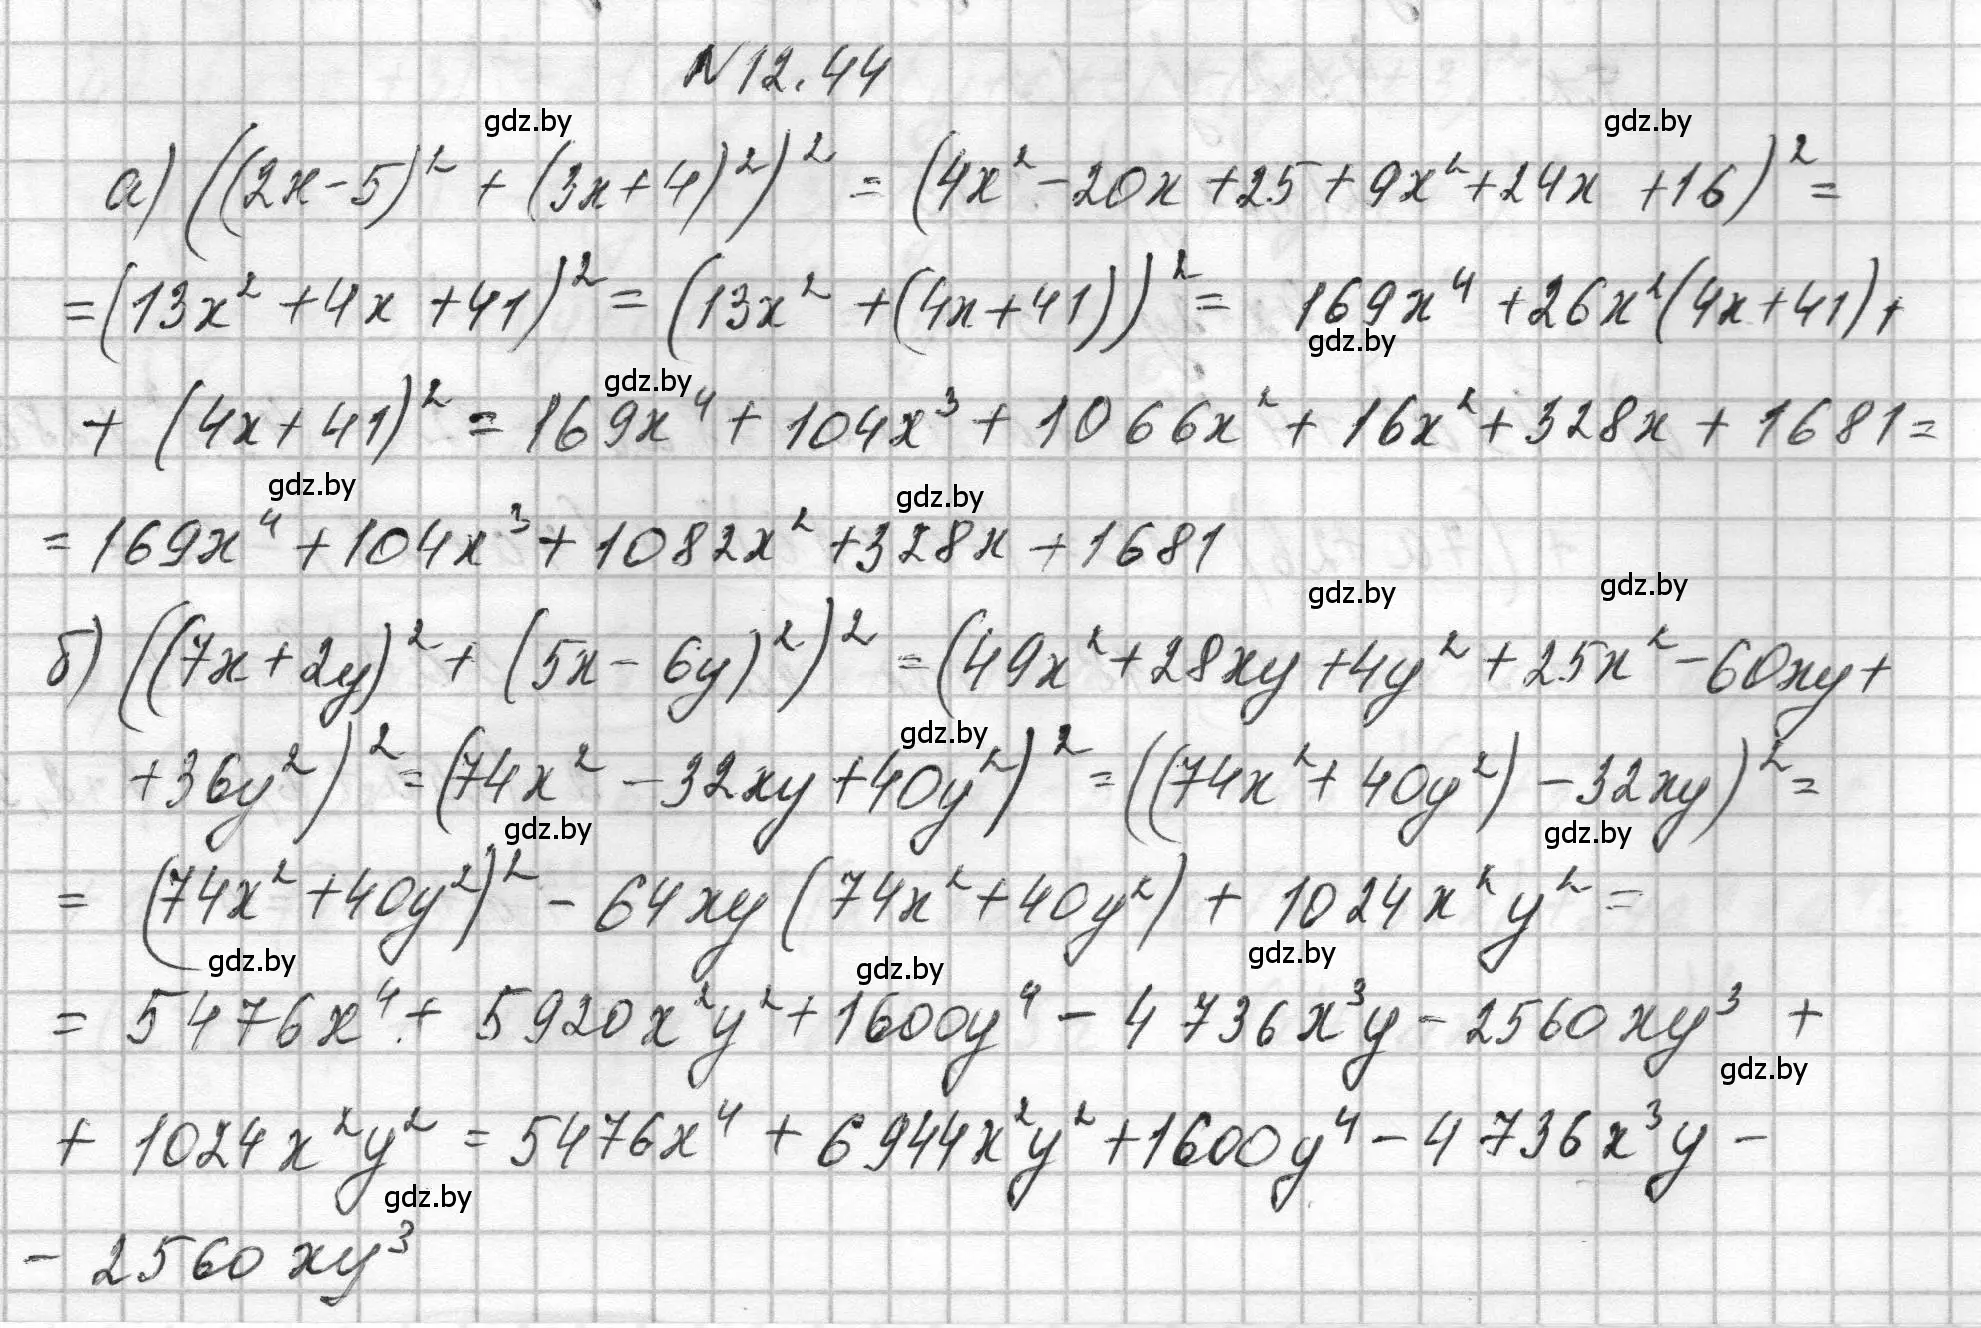 N12.44
gdz.by
gdz.by
а) ((2x-5)² + (3x+4)²)² = (4x² - 20x + 25 + 9x² + 24x + 16)² =
= (13x² + 4x + 41)² = (13x² + (4x+41))² = 169x⁴ + 26x²(4x+41) +
gdz.by
gdz.by
+ (4x+41)² = 169x⁴ + 104x³ + 1066x² + 16x² + 328x + 1681 =
gdz.by
gdz.by
= 169x⁴ + 104x³ + 1082x² + 328x + 1681
gdz.by
gdz.by
б) ((7x+2y)² + (5x - 6y)²)² = (49x² + 28xy + 4y² + 25x² - 60xy +
gdz.by
+ 36y²)² = (74x² - 32xy + 40y²)² = ((74x² + 40y²) - 32xy)² =
gdz.by
gdz.by
= (74x² + 40y²)² - 64xy (74x² + 40y²) + 1024x²y² =
gdz.by
gdz.by
gdz.by
= 5476x⁴ + 5920x²y² + 1600y⁴ - 4736x³y - 2560xy³ +
gdz.by
+ 1024x²y² = 5476x⁴ + 6944x²y² + 1600y⁴ - 4736x³y -
gdz.by
- 2560xy³